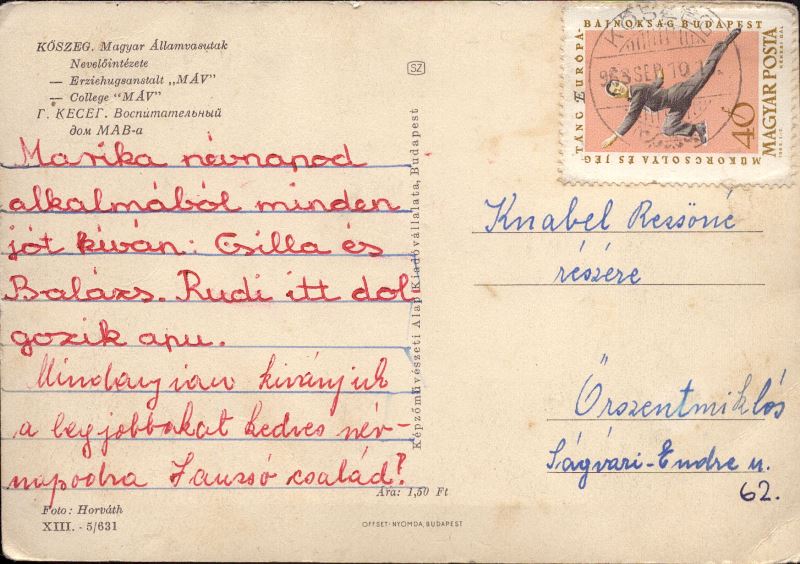 KŐSZEG. Magyar Államvasutak
Nevelőintézete
— Erziehugsanstalt „MÁV”
— College “MÁV”
Г. КЕСЕГ. Воспитательный
дом МАВ-а
Marika névnapod
alkalmából minden
jót kíván: Csilla és
Balázs. Rudi itt dol
gozik apu.
Mindanyian kivánjuk
a legjobbakat kedves név-
napodra család?
Ára: 1,50 Ft
Foto: Horváth
XIII. - 5/631
OFFSET-NYOMDA, BUDAPEST
SZ
Képzőművészeti Alap Kiadóvállalata, Budapest
TÁNC EURÓPA-
BAJNOKSÁG BUDAPEST
MŰKORCSOLYA ÉS JÉG
40
MAGYAR POSTA
963 SEP 10
Knabel Rezsőné
részére
Őrszentmiklós
Ságvári-Endre u.
62.